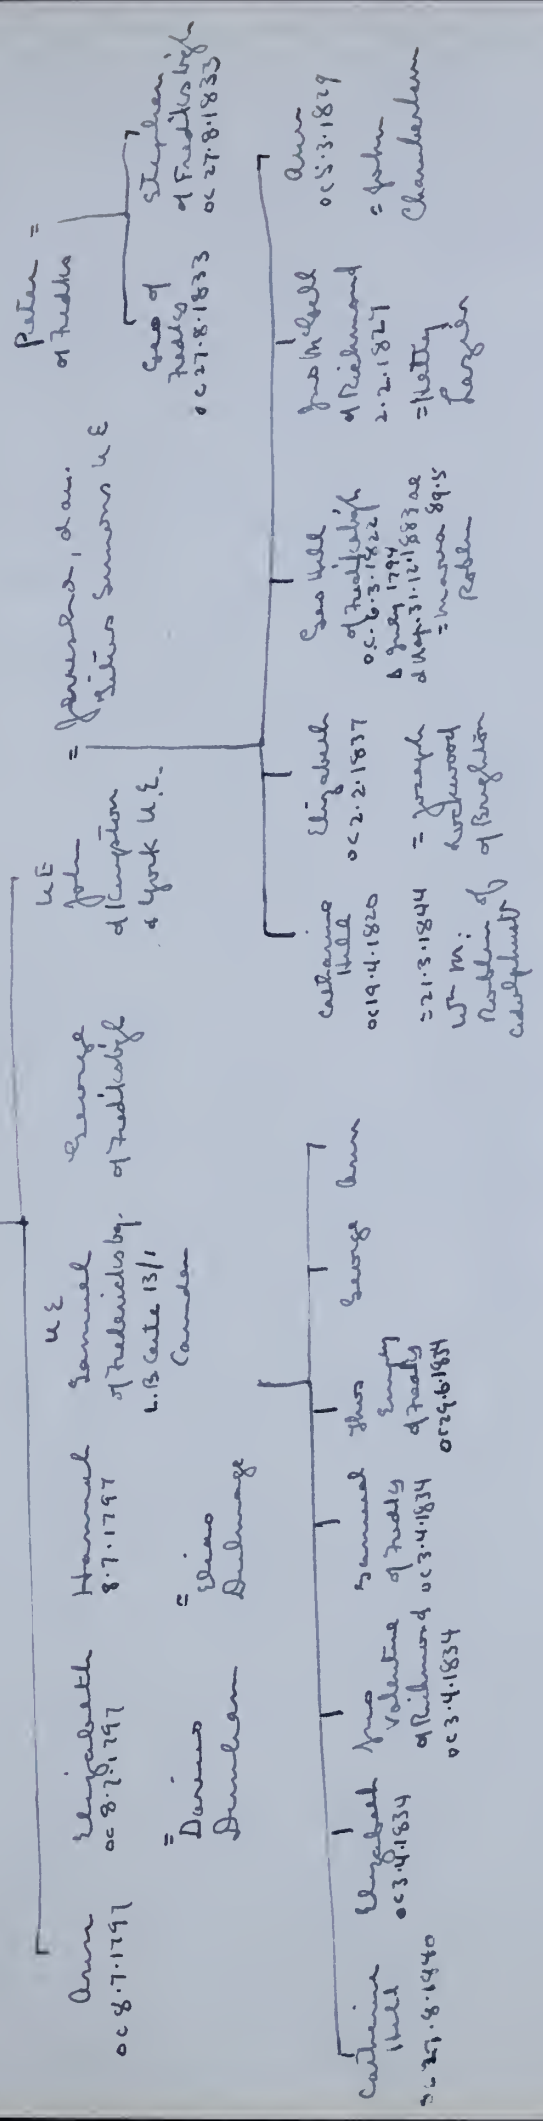 Ann
oc 8.7.1797
Elizabeth
oc 8.7.1797
=
Darius
Dunham
Hannah
8.7.1797
=
Elias
Dulmage
UE
Samuel
of Fredericksbg.
L.B Certe 13/1
Camden
George
of Fredksbgh
UE
John
of Kingston
& York U.E.
=
Jerusha, dau.
Titus Simons UE
Peter =
of Fredks
Geo of
Fredks
oc 27.8.1833
Stephen
of Fredksbgh
oc 27.8.1833
Catherine
Hill
27.8.1840
Elizabeth
oc 3.4.1834
Jno
Valentine
of Richmond
oc 3.4.1834
Samuel
of Fredks
oc 3.4.1834
Thos
Empey
of Fredks
oc 29.6.1834
George
Ann
Catharine
Hill
oc 19.4.1820
= 21.3.1844
Wm M.
Roblin of
Adolphust
Elizabeth
oc 2.2.1837
= Joseph
Lockwood
of Brighton
Geo Hill
of Fredksbgh
o.c. 6.3.1822
b July 1794
d Nap. 31.12.1883 ae
= Maria 89.5
Roblin
Jno McGill
of Richmond
2.2.1827
= Hetty
Lazier
Ann
oc 5.3.1829
= John
Chamberlain